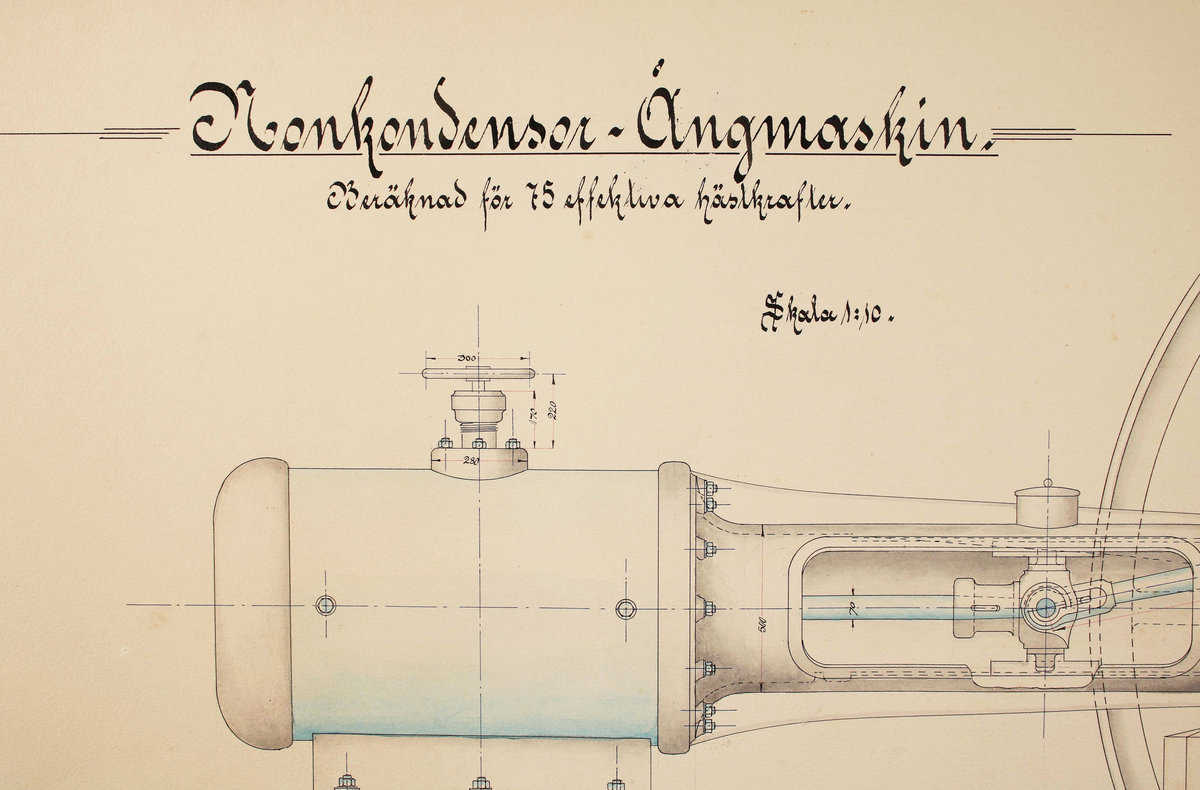 Nonkondensor-Ångmaskin.
Beräknad för 75 effektiva hästkrafter.
Skala 1:10.
300
170
220
280
500
70